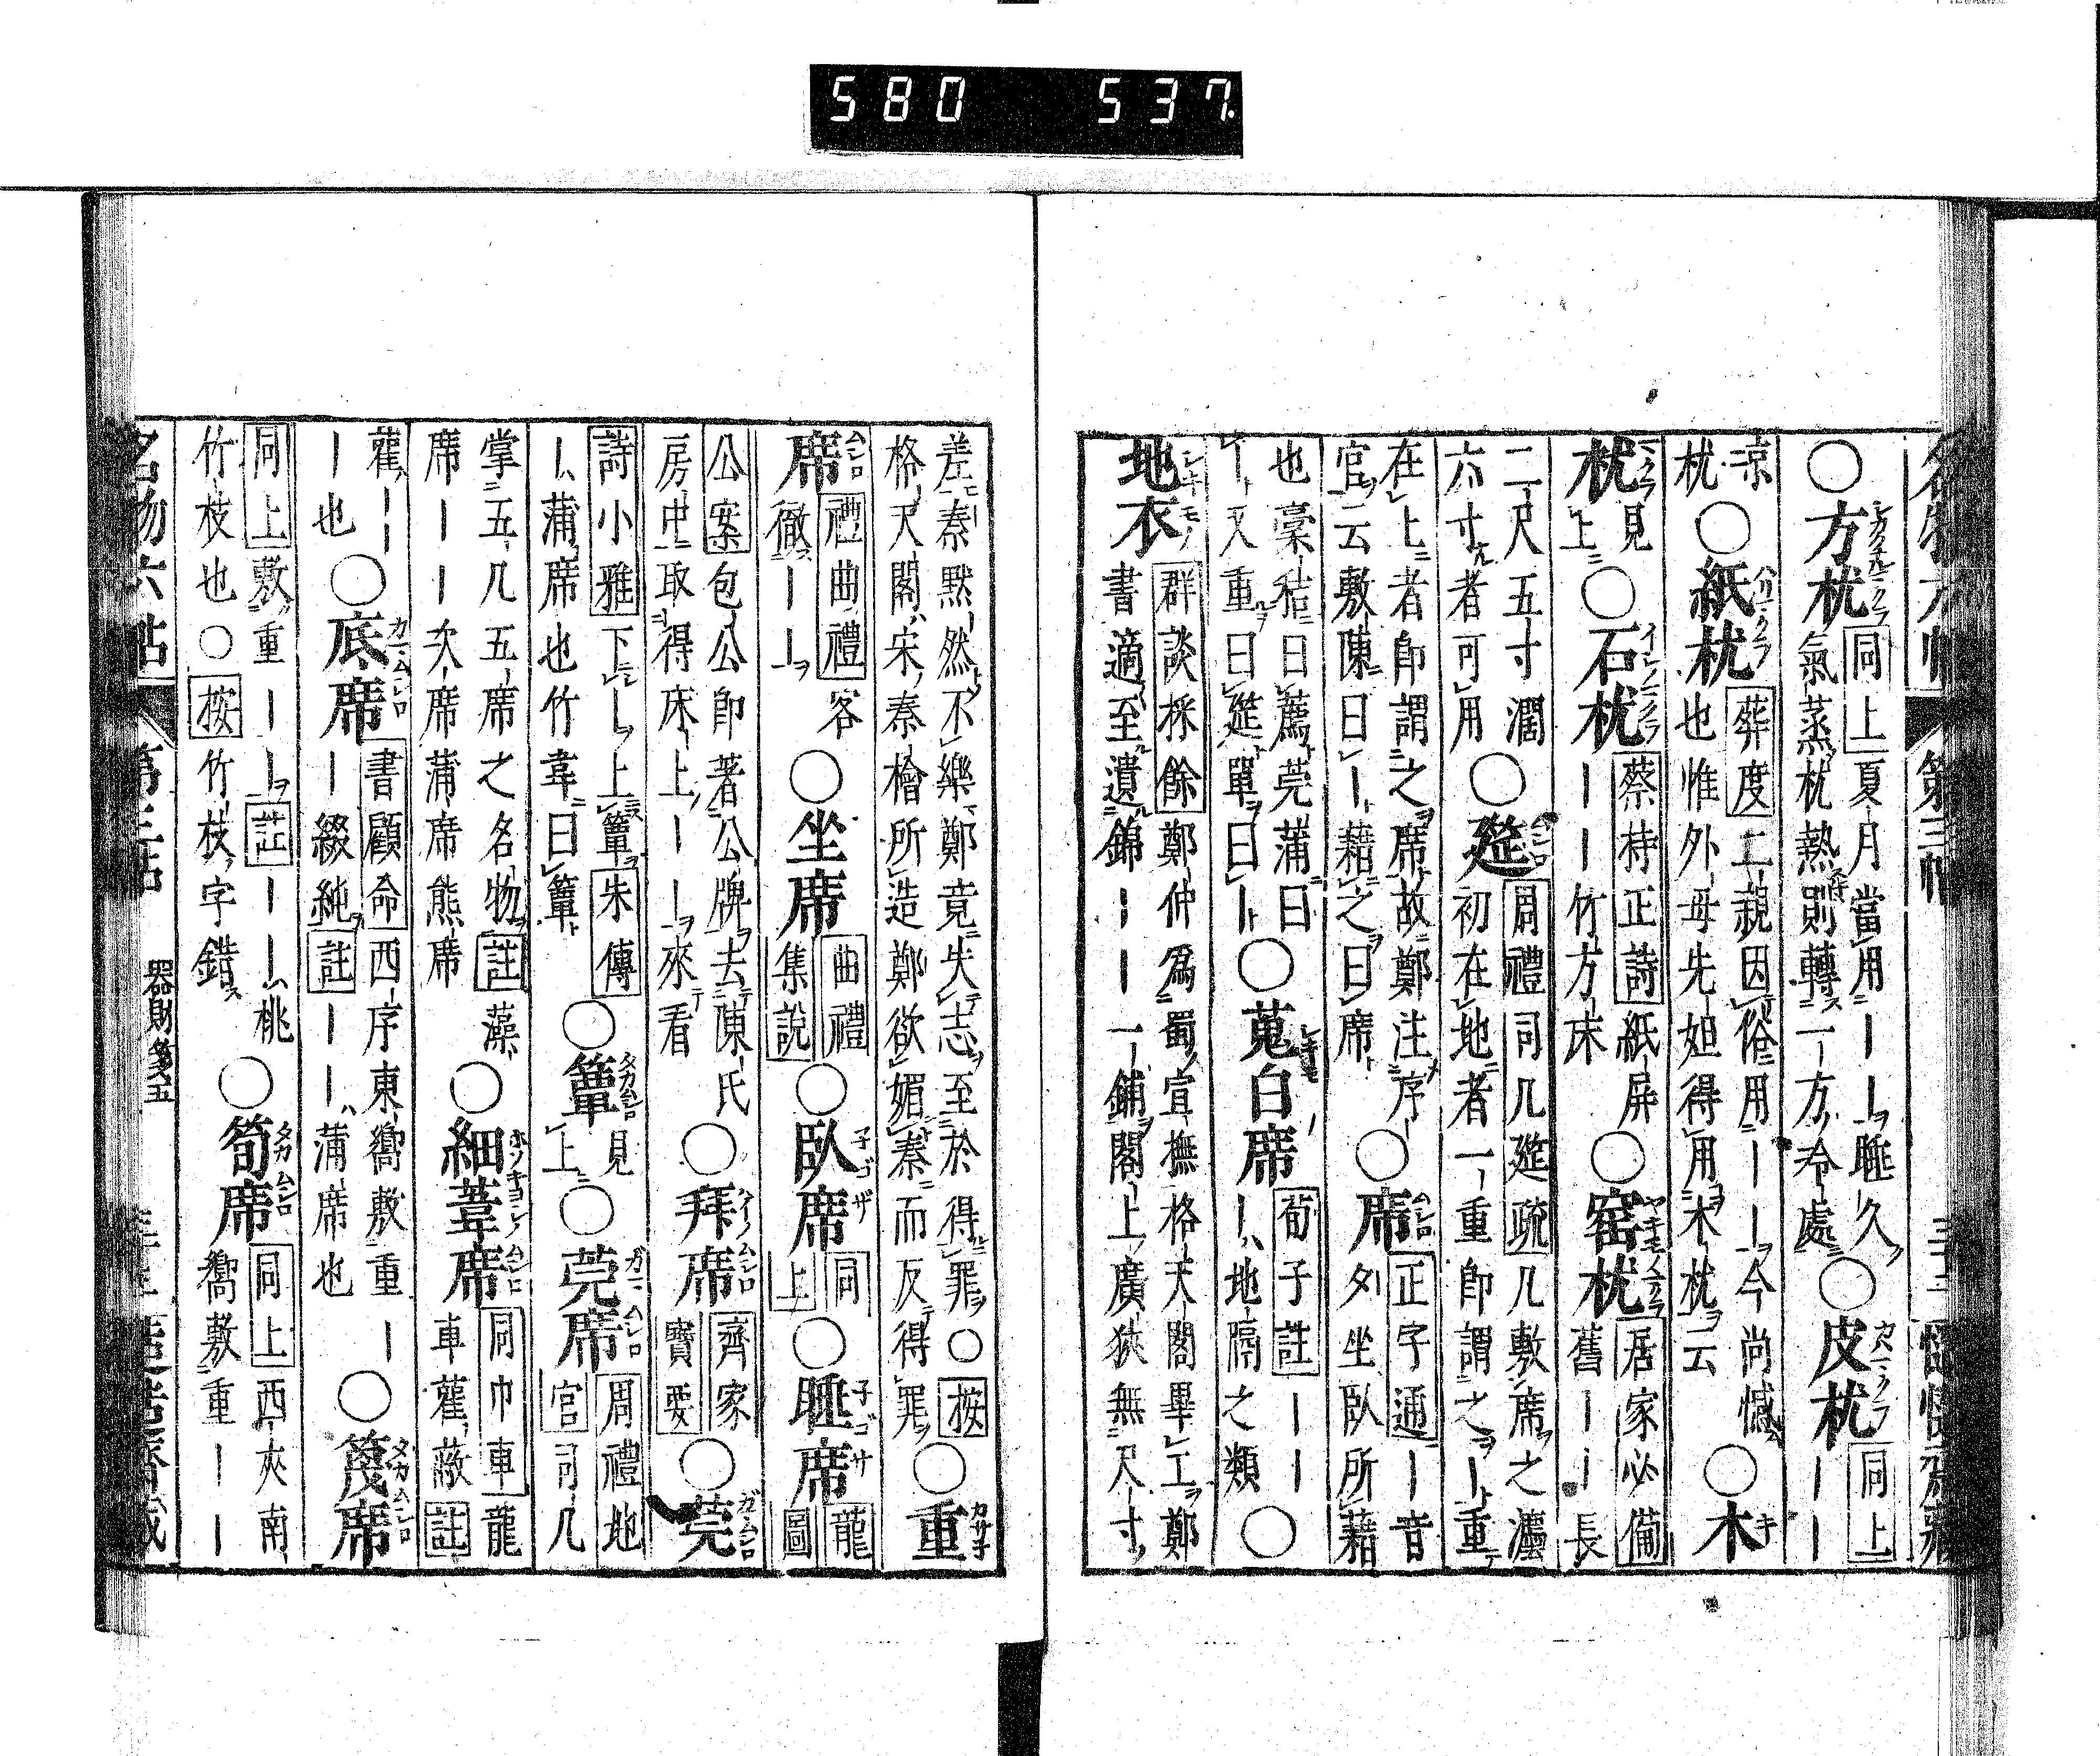 580 537.
○方枕同上夏月當用｜｜睡久
氣蒸枕熱則轉一方冷處○皮枕同上｜｜
凉枕○紙枕葬度二親因俗用｜｜今尚憾
也惟外母先妣得用木枕云○木
枕見上○石枕蔡持正詩紙屏｜｜竹方床○窑枕居家必備舊｜｜長
二尺五寸濶六寸者可用○筵周禮司几筵疏几敷席之灋
初在地者一重即謂之｜重
在上者即謂之席故鄭注序官云敷陳曰｜藉之曰席○席正字通｜音夕坐臥所藉
也藁秸曰薦莞蒲曰｜又重曰筵單曰｜○蒐白席荀子註｜｜｜地隔之類○
地衣群談採餘鄭仲為蜀宣撫格天閣畢工鄭
書適至遺錦｜｜一鋪閣上廣狹無尺寸
差秦黙然不樂鄭竟失志至於得罪○按
格天閣宋秦檜所造鄭欲媚秦而反得罪○重
席禮曲禮客徹｜｜○坐席曲禮集說○臥席同上○睡席龍圖
公案包公即著公牌去陳氏房中取得床上｜｜來看○拜席齊家寶要○莞
詩小雅下｜上簟朱傳｜蒲席也竹葦曰簟○簟見上○莞席周禮地官司几
掌五几五席之名物註藻席｜｜次席蒲席熊席○細葦席同巾車龍車雚蔽註
雚｜｜｜也○底席書顧命西序東嚮敷重｜｜綴純註｜｜蒲席也○篾席
同上敷重｜｜註｜｜桃竹枝也○按竹枝字錯○筍席同上西夾南嚮敷重｜｜
名物六帖 第三帖 器財箋五